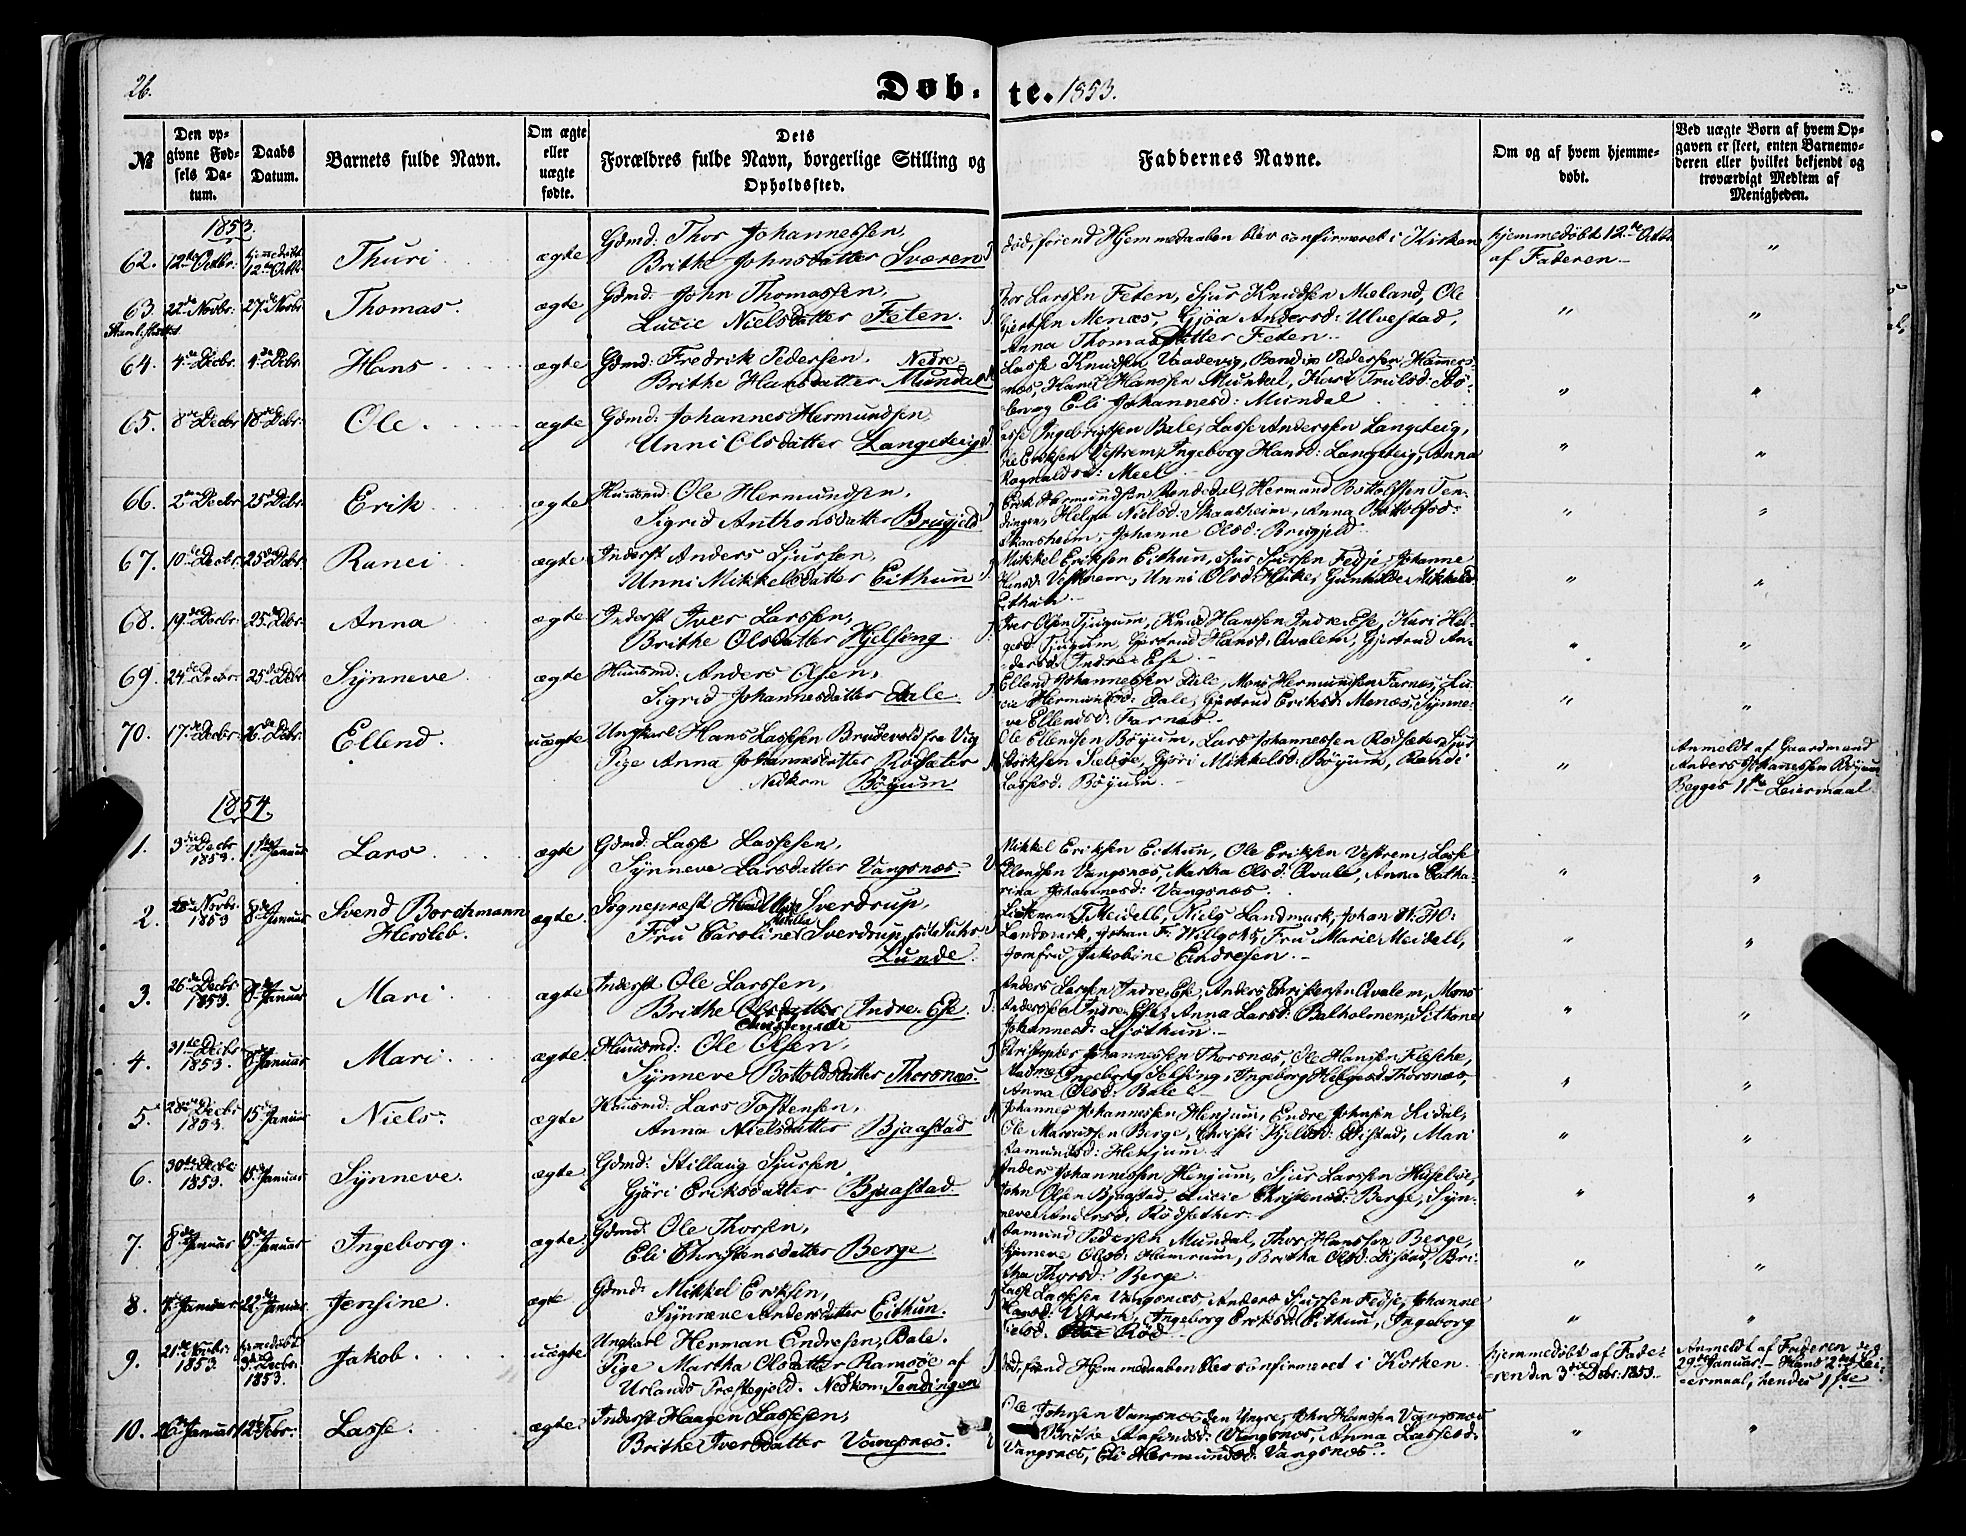 26.
Døb-te. 1853.
№
Den op-
givne Fød-
sels Da-
tum.
Daabs
Datum.
Barnets fulde Navn.
Om ægte
eller
uægte
fødte.
Dets
Forældres fulde Navn, borgerlige Stilling og
Opholdssted.
Faddernes Navne.
Om og af hvem hjemme-
døbt.
Ved uægte Børn af hvem Op-
gaven er skeet, enten Barnemo-
deren eller hvilket bekjendt og
troværdigt Medlem af
Menigheden.
1853.
62. 12te Octbr: hjemmedøbt 12te Octbr Thuri ægte Gdmd: Thor Johannessen,
Brithe Johnsdatter Sværen
død, førend Hjemmedaaben blev confirmeret i Kirken
hjemmedøbt 12te Octbr
af Faderen „
63. 22de Novbr: 27de Novbr: Thomas. ægte Gdmd: John Thomassen,
Lucie Nielsdatter Feten.
Thor Larssen Feten, Sjur Knudsen Mæland, Ole
Gjertsen Menæs, Gjøa Andersd: Ulvestad,
Anna Thomasdatter Feten „ „
64. 4de Decbr. 4de Decbr Hans ægte Gdmd: Fredrik Pedersen, Nedre
Brithe Hansdatter Mundal
Lasse Knudsen Vaadevig, Bendix Pedersen Hamers-
næs, Hans Hanssen Mundal, Kari Trulsd:
Eli Johannesd: Mundal „ „
65. 8de Decbr 18de Decbr: Ole. ægte Gdmd: Johannes Hermundsen,
Unni Olsdatter Langetevig
Lasse Ingebrigtsen Bale, Lasse Anderssen Langeteig,
Ole Eriksen Vestrem, Ingeborg Hansd: Langeteig, Anna
Ragnvaldsd: Meel „ „
66. 2den Decbr 25de Decbr: Erik ægte Huusmd: Ole Hermundsen,
Sigrid Anthonsdatter Brugjeld
Erik Hermundsen Rendedal, Hermund Bottolfsen Ten-
dingen, Helga Nielsd: Skaasheim, Anna Bottolfsd:
Skaasheim, Johanne Olsd: Brugjeld „ „
67. 10de Decbr: 25de Decbr: Ranei ægte Inderst Anders Sjursen,
Unni Mikkelsdatter Eithun
Mikkel Eriksen Eithun, Sjur Sjursen Fedje, Johanne
Hansd: Vestrem, Unni Olsd: Huke, Gunhilde Mikkelsd:
Eithun „ „
68. 19de Decbr: 25de Decbr: Anna ægte Inderst Iver Larssen,
Brithe Olsdatter Hjelseng
Iver Olsen Tjugum, Knud Hanssen Indre Ese, Kari Hel-
gesd: Tjugum, Gjertrud Hansd: Qvalem, Gjertrud An-
dersd: Indre Ese „ „
69. 24de Decbr 25de Decbr Synneve ægte Huusmd: Anders Olsen,
Sigrid Johannesdatter Dale
Ellend Johannessen Dale, Mons Hermundsen Farnes, Lu-
cie Hermundsd: Dale, Gjertrud Eriksd: Menæs, Synne-
ve Ellendsd: Farnes „ „
70. 17de Decbr: 26de Decbr: Ellend. uægte Ungkarl Hans Lassesen Brudevold fra Vig
Pige Anna Johannesdatter Rødsæter
Nedkom Bøyum
Ole Ellendsen Bøyum, Lars Johannessen Rødsæter, Sjur
Gjøri Mikkelsd: Bøyum, Randi
Lassesd: Bøyum. „
Anmeldt af Gaardmand
Anders Johannessen Bøyum
Begges 1ste Leiermaal
1854.
1. 3die Decbr 1853. 1ste Januar Lars ægte Gdmd: Lasse Lassesen,
Synneve Larsdatter Vangsnæs.
Mikkel Eriksen Eithun, Ole Eriksen Vestrem, Lasse
Ellendsen Vangsnæs, Martha Olsd: Qvale, Anna Catha-
rina Johannesd: Vangsnæs „ „
2. 28de Novbr. 1853 8de Januar Svend Borchmann
Hersleb. ægte. Sognepræst Harald Ulrik Sverdrup,
Fru Caroline Metella Sverdrup, født Suhr
Lunde.
F. Meidell, Niels Landmark, Johan H. H:
Landmark, Johan F. Willgohs, Fru Marie Meidell,
Jomfru Jakobine Endresen „ „
3. 26de Decbr 1853. 8de Januar Mari ægte Inderst Ole Larssen,
Brithe Olsdatter Indre Ese.
Christensdr
Anders Larssen Indre Ese, Anders Christensen Qvalem, Mons
Anderssen Indre Ese, Anna Larsd: Balholmen, Sithone
Johannesd: Sjøthun „ „
4. 31te Decbr 1853. 8de Januar Mari ægte. Huusmd: Ole Olsen,
Synneve Bottoldsdatter Thorsnæs.
Christopher Johannessen Thorsnæs, Ole Hanssen Flesche,
Madme Ingeborg Selseng, Ingeborg Helgesd: Thorsnæs,
Anna Olsd: Bale „ „
5. 28de Decbr 1853. 15de Januar Niels. ægte Huusmd: Lars Tostensen,
Anna Nielsdatter Bjaastad
Johannes Johannessen Henjum, Endre Johnsen Lidal,
Ole Marcussen Berge, Christi Kjeldsd: Eistad, Mari
Aamundsd: Henjum „ „
6. 30te Decbr 1853. 15de Januar Synneve. ægte Gdmd: Stillaug Sjursen,
Gjøri Eriksdatter Bjaastad
Anders Johannessen Henjum, Sjur Larssen Huseboe,
John Olsen Bjaastad, Lucie Christensd: Berge, Syn-
neve Andersd: Rødsether. „ „
7. 8de Januar 15de Januar Ingeborg. ægte Gdmd: Ole Thorsen,
Eli Christensdatter Berge
Aamund Pedersen Mundal, Thor Hanssen Berge,
Synneve Olsd: Hamrum, Britha Olsd: Eistad, Bri-
tha Thorsd: Berge „ „
8. Januar 22de Januar Jensine. ægte Gdmd: Mikkel Eriksen,
Synneve Andersdatter Eithun.
Lasse Lassesen Vangsnæs, Anders Sjursen Fedje, Johanne
Hansd: Vestrem, Ingeborg Eriksd: Eithun, Ingeborg
Nielsd: Rød „ „
9. 21de Novbr: 1853 hjemmedøbt 3die Decbr: 1853. Jakob. uægte Ungkarl Herman Endresen, Bale.
Pige Martha Olsdatter Ramsøe af
Urlands Præstegjeld. Nedkom Tendingen
død, førend Hjemmedaaben blev confirmeret i Kirken.
hjemmedøbt af Fade-
ren den 3die Decbr: 1853.
Anmeldt af Faderen den
29de Januar. Hans 2det Lei-
ermaal, hendes 1ste
10. 26de Januar 12te Febr: Lasse. ægte. Inderst Haagen Lassesen,
Brithe Iversdatter Vangsnæs.
Ole Johnsen Vangsnæs den Yngre, John Hanssen Vangsnæs
Brithe Vangsnæs, Anna Lassesd:
Vangsnæs, Eli Hermundsd: Vangsnæs. „ „